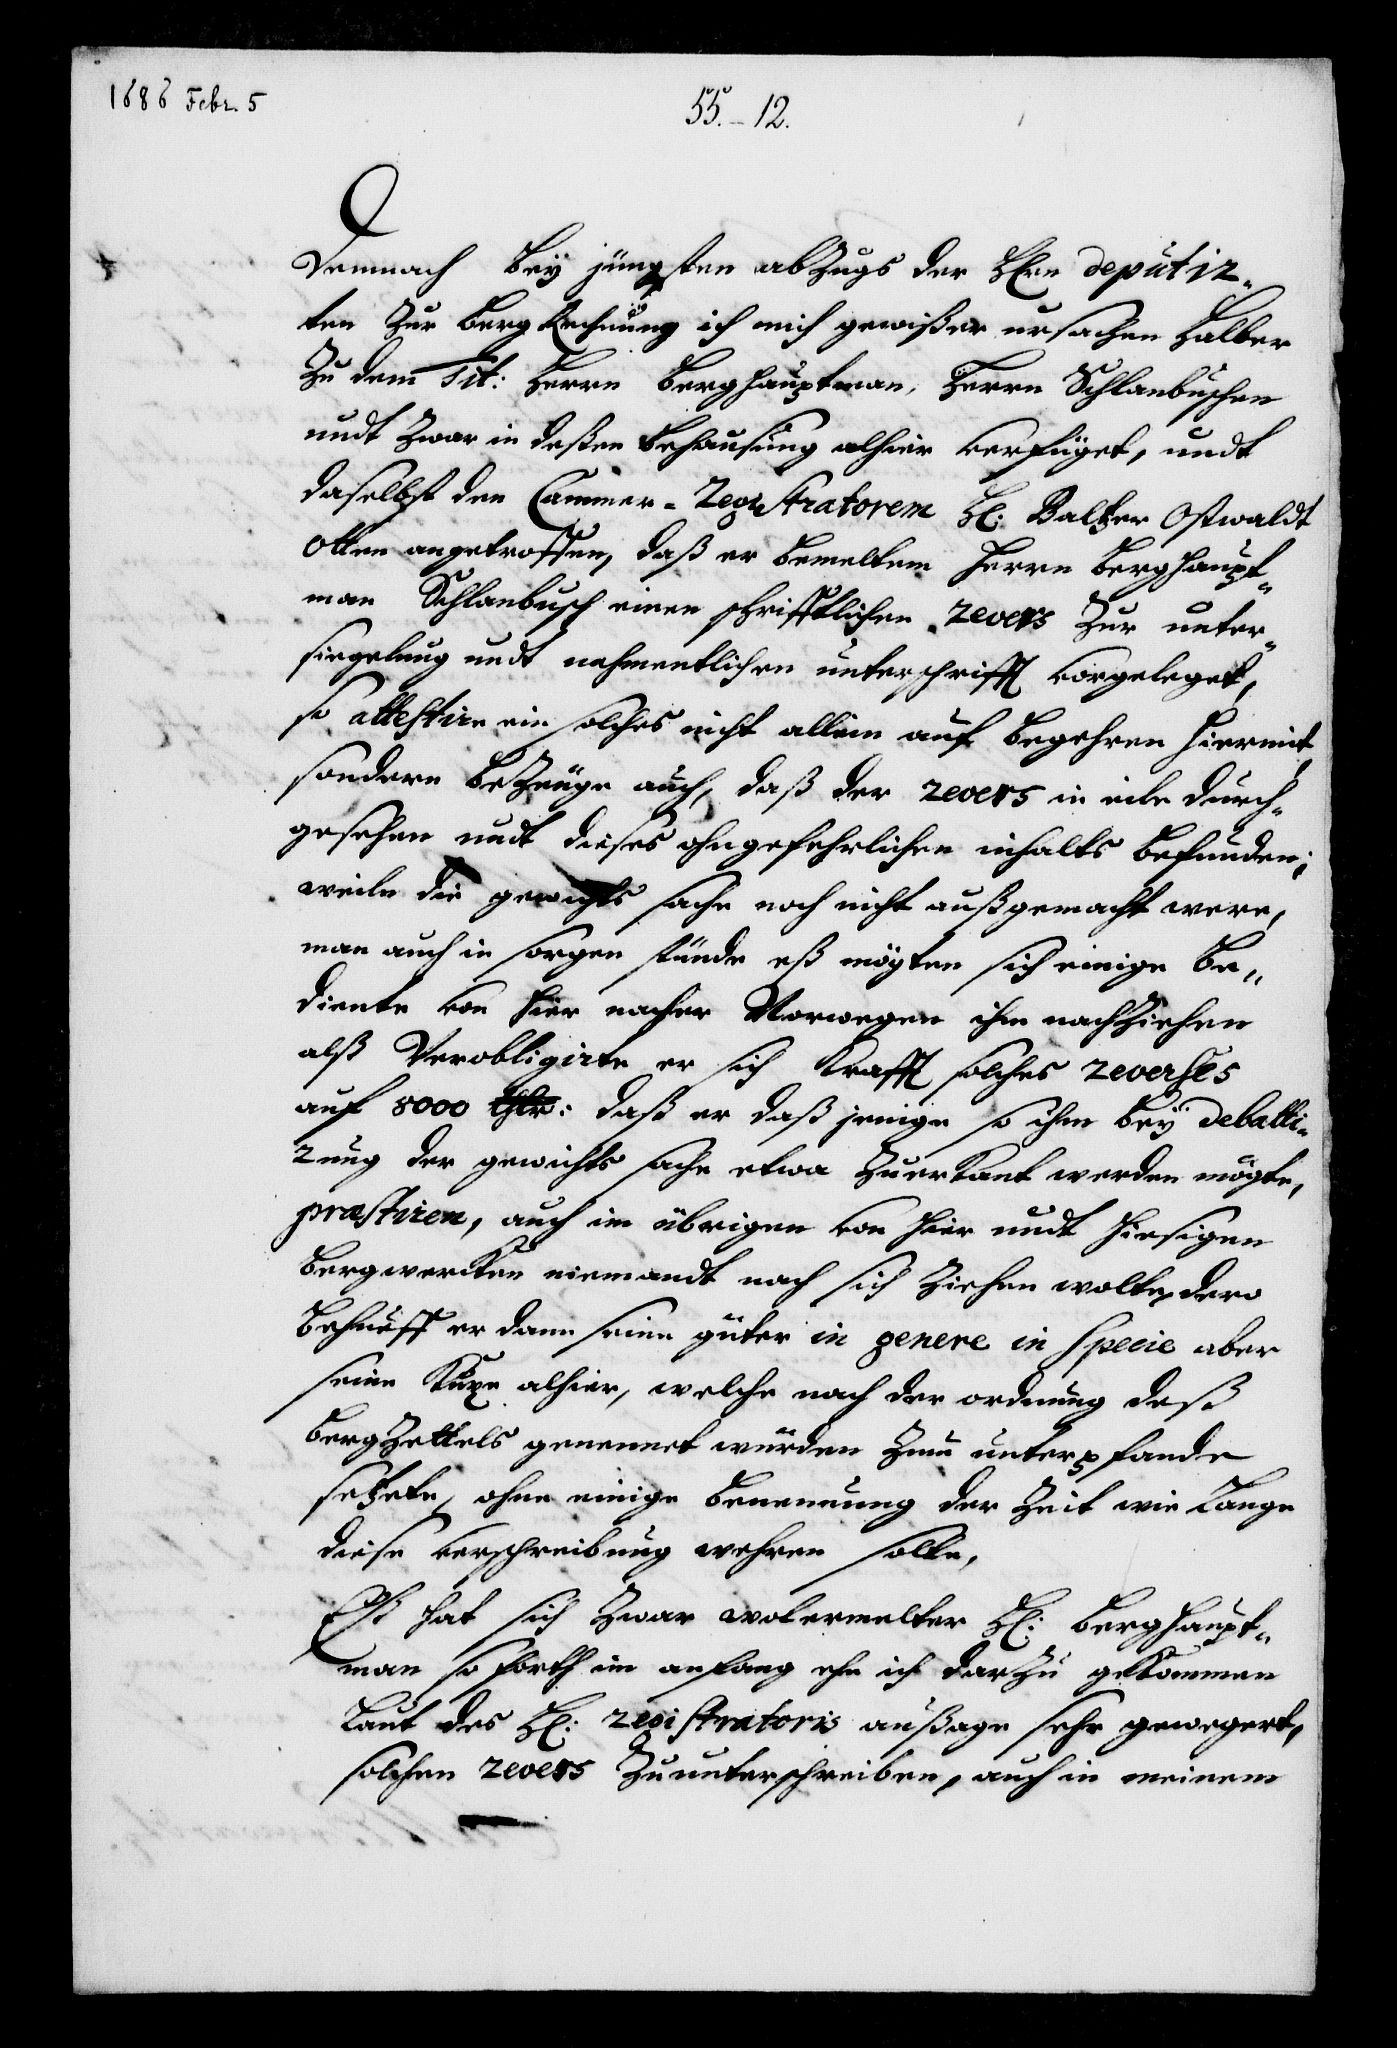 1686 Febr. 5
55.-12.
Demnach bey jüngsten abzugs der HErn deputir-
ten zur Berg Rechnung ich mich gewißer ursachen halber
zu dem Tit: Herrn Berghauptman, Herrn Schlanbuschen
undt zwar in deßen behausung alhier verfüget, undt
daselbst den Cammer-Registratorem H: Baltzer Ostwaldt
Otten angetroffen, daß er bemeltem Herrn Berghaupt-
man Schlanbusch einen schrifftlichen revers zur unter-
siegelung undt nahmentlichen unterschrifft vorgeleget,
so attestire ein solches nicht allein auf begehren hiermit,
sondern bezeuge auch, daß der revers in eile durch-
gesehen undt dieses ohngefehrlichen inhalts befunden;
weiln die gewichts sache noch nicht außgemacht were,
man auch in sorgen stünde eß mögten sich einige be-
diente von hier nacher Norwegen ihm nachziehen
alß Verobligirte er sich krafft solches reverses
auf 8000 thlr: daß er daß jenige so ihm bey debatti-
rung der gewichts sache etwa zuerkant werden mögte,
præstiren, auch im übrigen von hier undt hiesigen
Bergwercken niemandt nach sich ziehen wolte, dero
behueff er dann seine güter in genere in specie aber
seine Kuxe alhier, welche nach der ordnung deß
Bergzettels genennet würden zum unterpfande
setzete, ohne einige benennung der zeit wie lange
diese verschreibung wehren solte,
Eß hat sich zwar wolermelter H: Berghaupt-
man so forth im anfang ehe ich darzu gekommen
laut des H: registratoris außage sehr gewegert,
solchen revers zu unterschreiben, auch in meinem